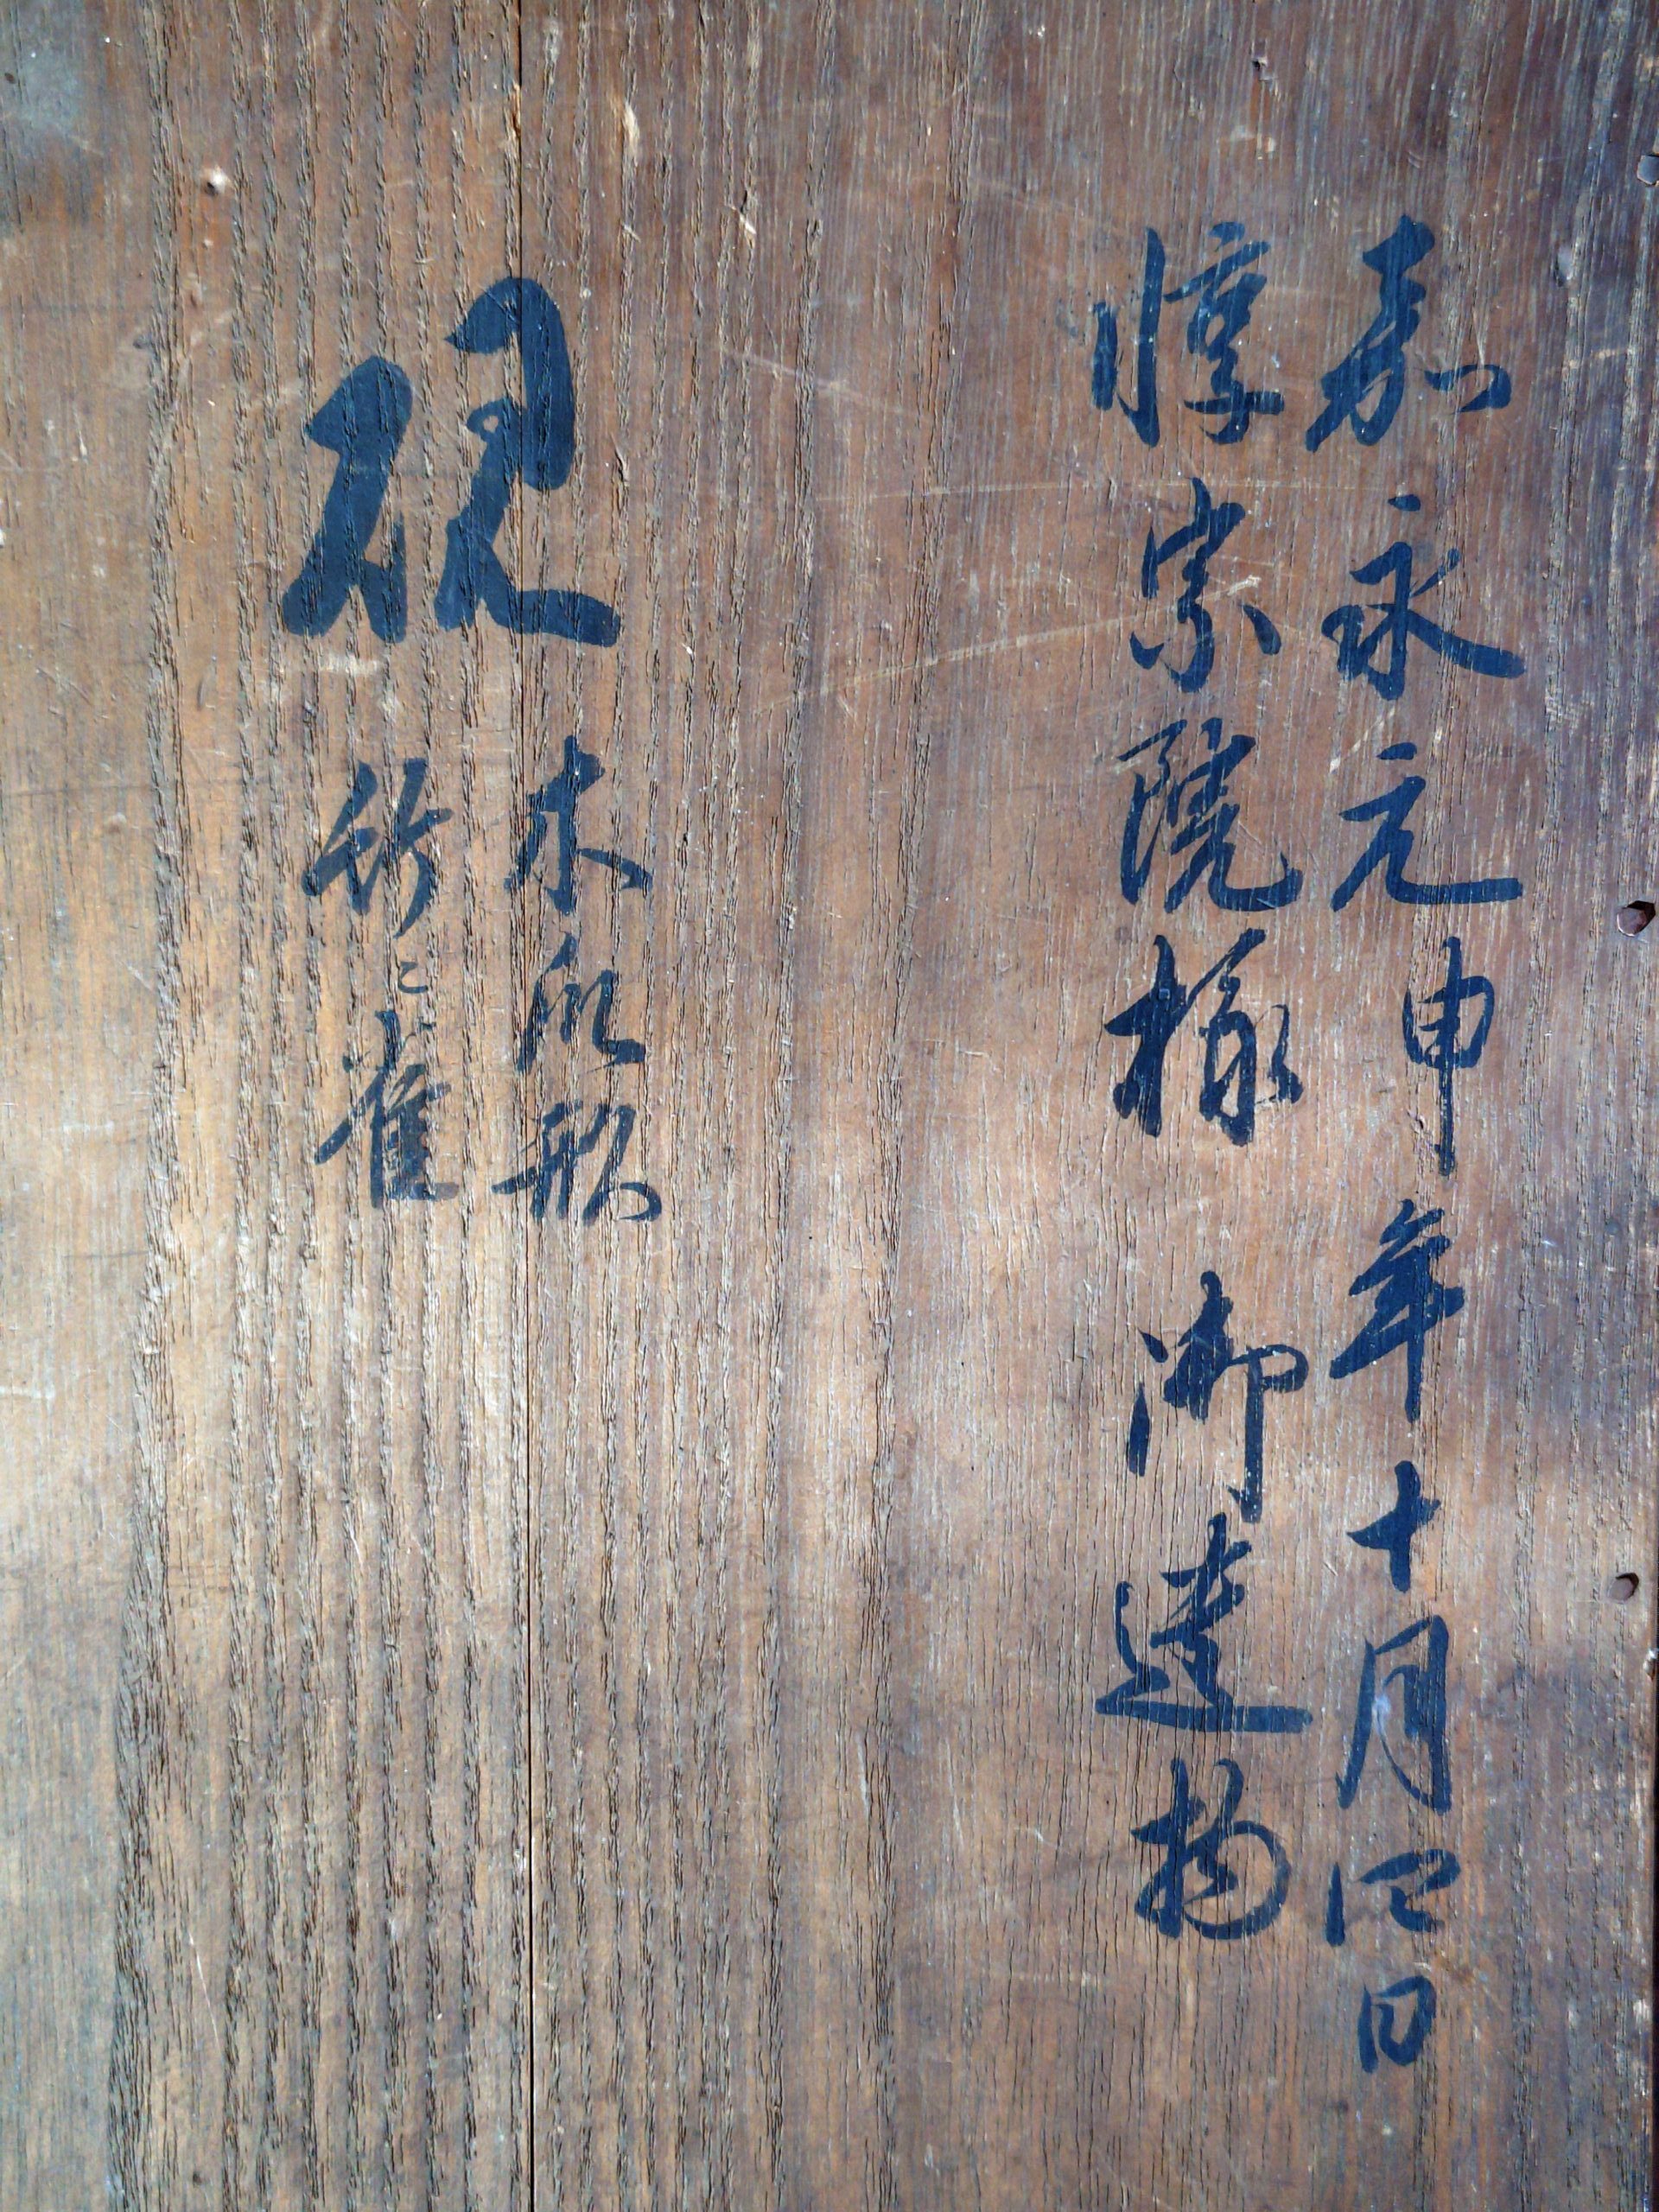 嘉永元申年十月四日
惇宗院様 御遺物
硯
木瓜形
竹ニ雀